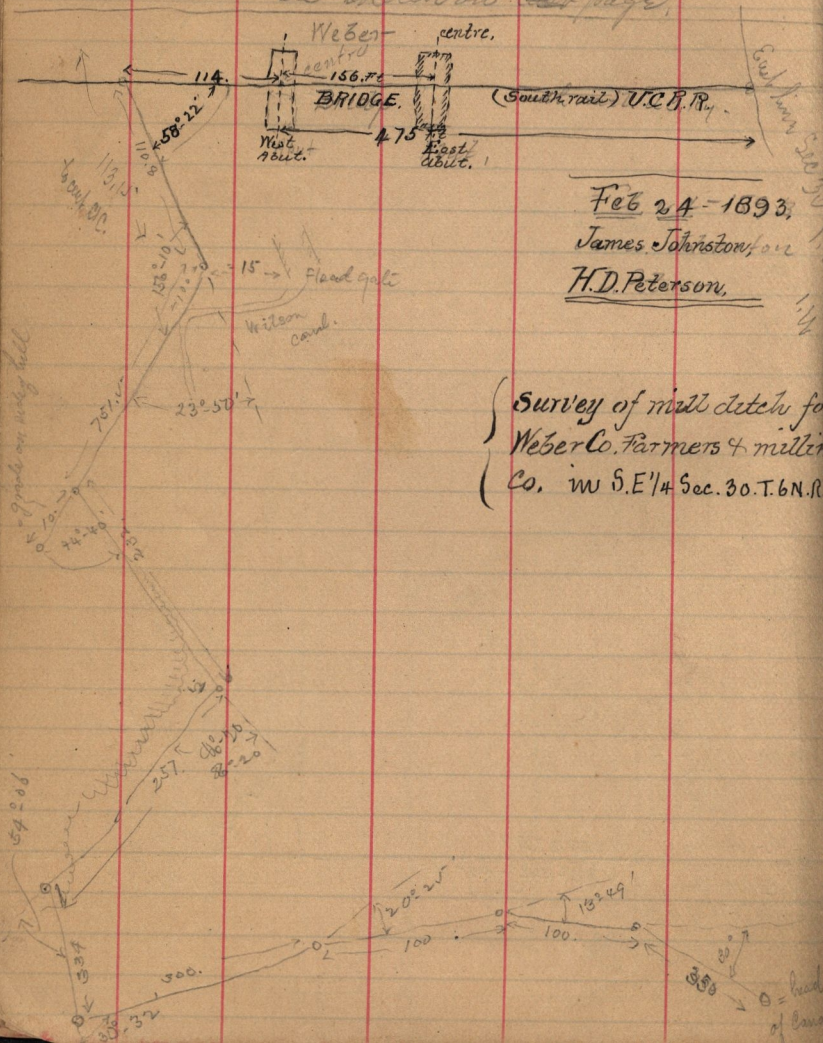 page.
Weber
centre
centre.
114. 156. Ft
BRIDGE. (South rail) U.C.R.R.
58°-22'
475 Ft
West Abut.
East Abut.
110.8
Feb 24 - 1893.
James Johnston,
H.D. Peterson.
158°-10'
15
Flood gate
Wilson
canal.
23°-50'
Survey of mill ditch fo
Weber Co. Farmers & millin
Co. in S.E 1/4 Sec. 30. T. 6 N. R
10.
257.
54°-06'
334
300.
20°-25'
100
13°49'
100.
350
30°
= head
of Cana
32'